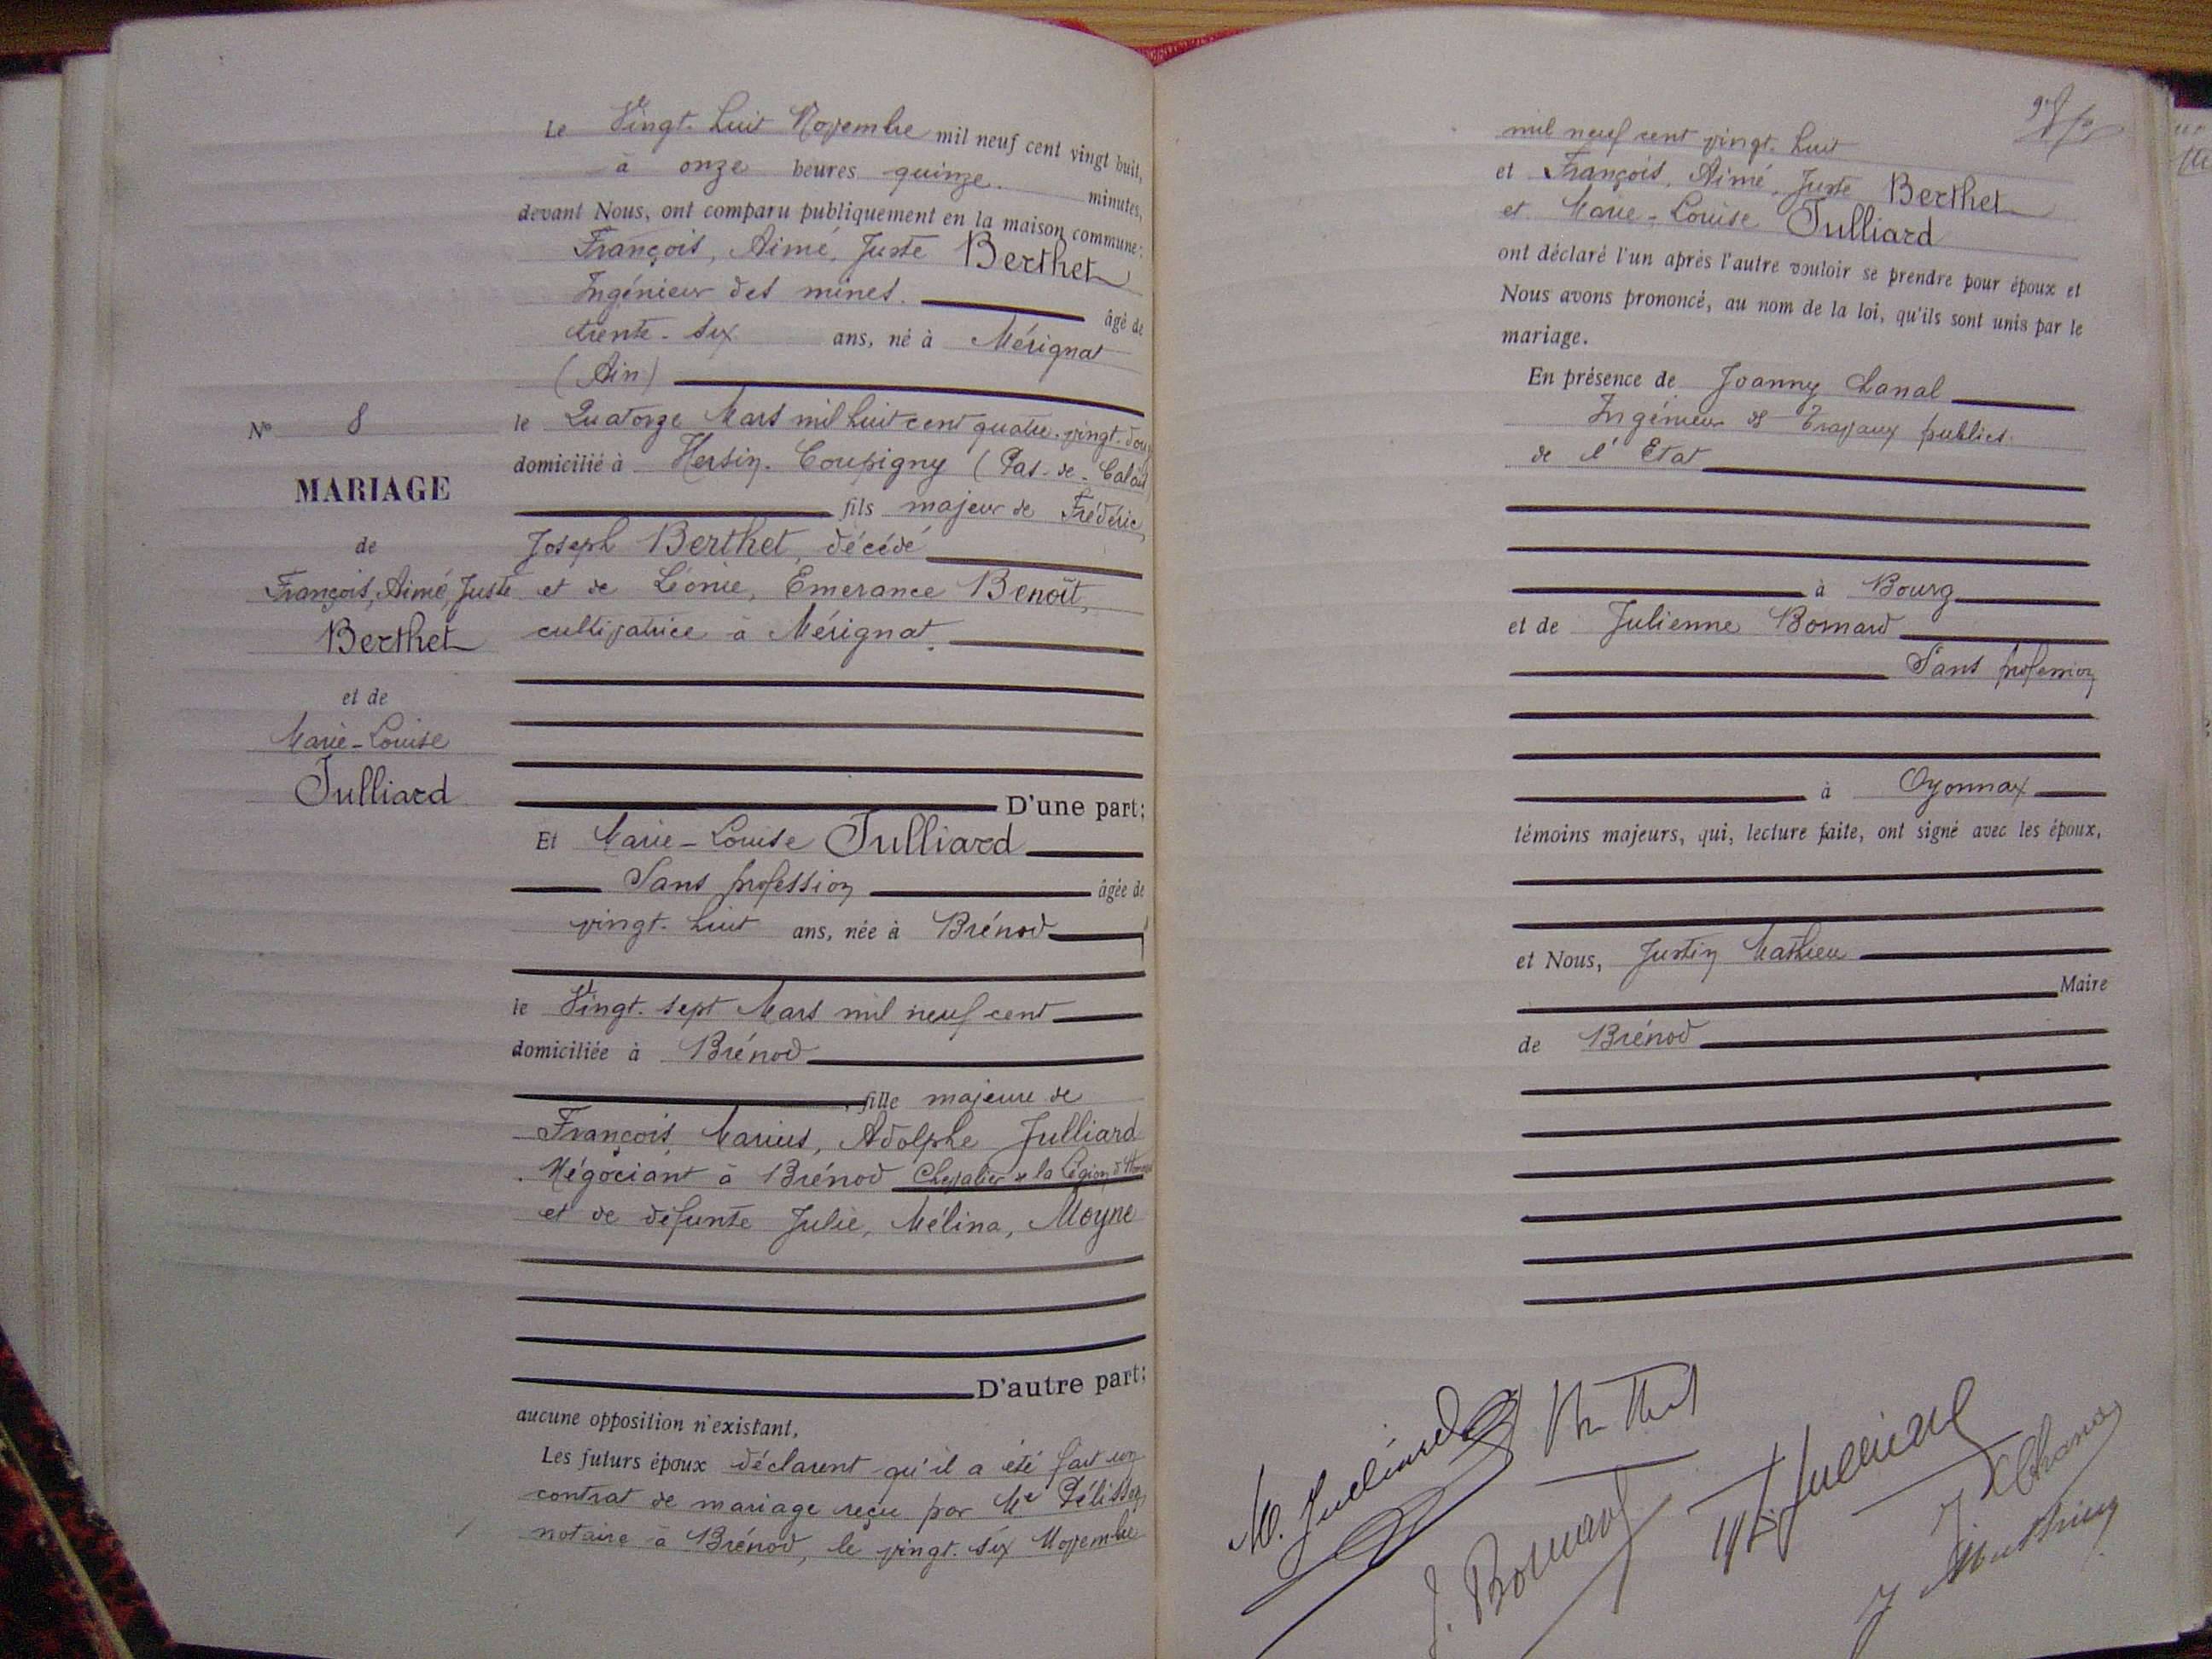 Le Vingt-huit Novembre mil neuf cent vingt huit,
à onze heures quinze minutes,
devant Nous, ont comparu publiquement en la maison commune:
François, Aimé, Juste Berthet
Ingénieur des mines. âgé de
trente-six ans, né à Mérignat
(Ain)
le Quatorze Mars mil huit cent quatre-vingt-douze
domicilié à Hersin-Coupigny (Pas-de-Calais)
fils majeur de Frédéric,
Joseph Berthet, décédé
et de Léonie, Emerance Benoît,
cultivatrice à Mérignat.
D'une part;
Et Marie-Louise Julliard
Sans profession âgée de
vingt-huit ans, née à Brénod
le Vingt-sept Mars mil neuf cent
domiciliée à Brénod
fille majeure de
François, Marius, Adolphe Julliard
Négociant à Brénod Chevalier de la Légion d'Honneur
et de défunte Julie, Mélina, Moyne
D'autre part;
aucune opposition n'existant,
Les futurs époux déclarent qu'il a été fait un
contrat de mariage reçu par Me Pélisson
notaire à Brénod, le vingt-six Novembre
N° 8
MARIAGE
de
François, Aimé, Juste
Berthet
et de
Marie-Louise
Julliard
mil neuf cent vingt-huit
et François, Aimé, Juste Berthet
et Marie-Louise Julliard
ont déclaré l'un après l'autre vouloir se prendre pour époux et
Nous avons prononcé, au nom de la loi, qu'ils sont unis par le
mariage.
En présence de Joanny Chanal
Ingénieur des Travaux publics
de l'Etat
à Bourg
et de Julienne Bornard
Sans profession
à Oyonnax
témoins majeurs, qui, lecture faite, ont signé avec les époux,
et Nous, Justin Mathieu
Maire
de Brénod
M. Julliard
Berthet
J. Bornard
Julliard
J Chanal
J Mathieu